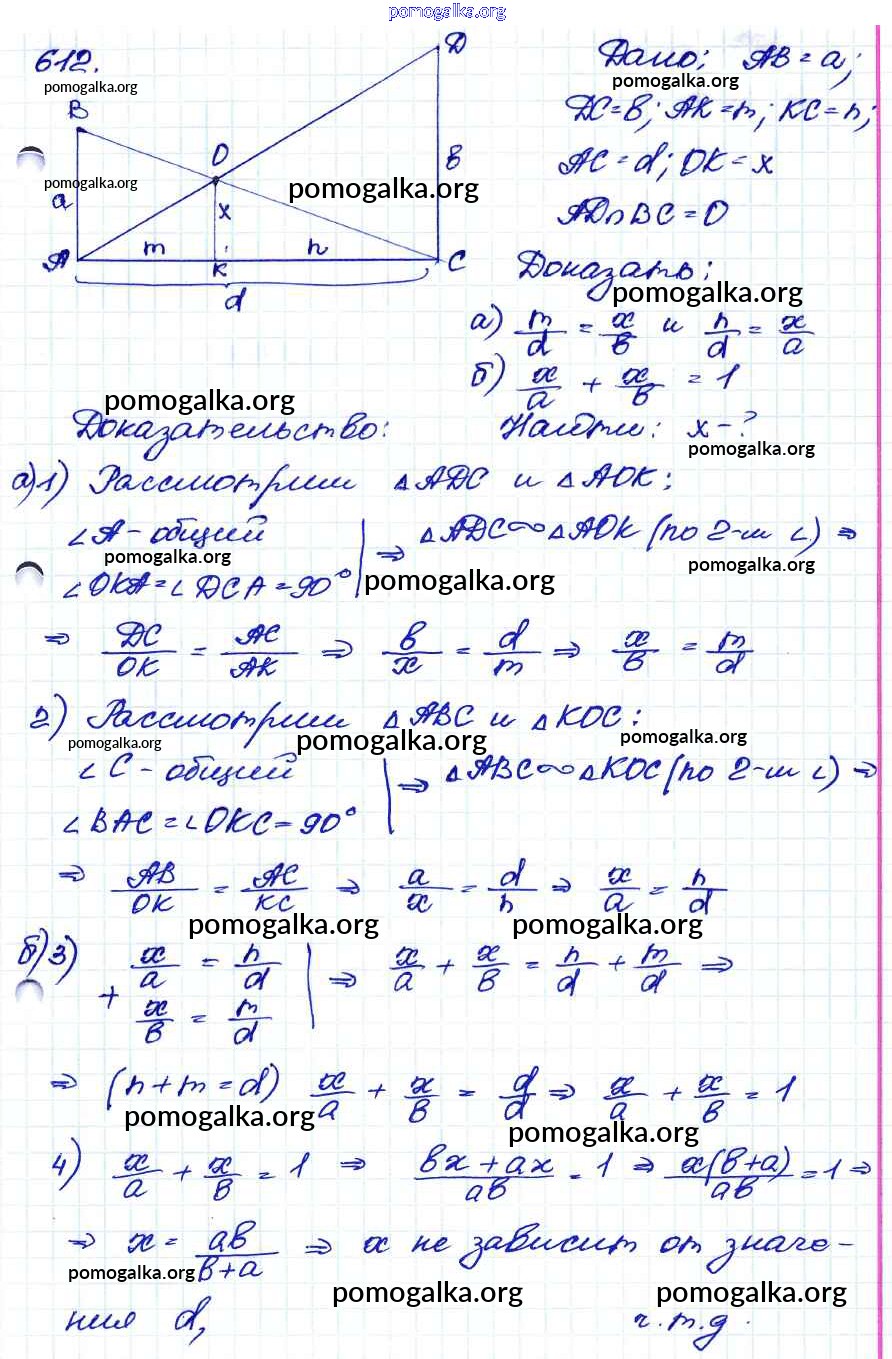 pomogalka.org
612.
Дано: AB = a;
pomogalka.org
pomogalka.org
DC = в; AK = m; KC = n;
AC = d; OK = x
AD∩BC = O
B
D
O
a
x
в
pomogalka.org
pomogalka.org
A
m
K
n
C
d
Доказать:
pomogalka.org
а) m/d = x/в и n/d = x/a
б) x/a + x/в = 1
pomogalka.org
Доказательство:
Найти: x - ?
pomogalka.org
а) 1) Рассмотрим △ADC и △AOK:
∠A - общий
pomogalka.org
∠OKA = ∠DCA = 90° | ⇒ △ADC ∾ △AOK (по 2-м ∠) ⇒
pomogalka.org
pomogalka.org
⇒ DC/OK = AC/AK ⇒ в/x = d/m ⇒ x/в = m/d
2) Рассмотрим △ABC и △KOC:
pomogalka.org
pomogalka.org
pomogalka.org
∠C - общий
∠BAC = ∠OKC = 90° | ⇒ △ABC ∾ △KOC (по 2-м ∠) ⇒
⇒ AB/OK = AC/KC ⇒ a/x = d/n ⇒ x/a = n/d
pomogalka.org
pomogalka.org
б) 3) x/a = n/d
+ x/в = m/d | ⇒ x/a + x/в = n/d + m/d ⇒
⇒ (n + m = d) x/a + x/в = d/d ⇒ x/a + x/в = 1
pomogalka.org
pomogalka.org
4) x/a + x/в = 1 ⇒ вx + ax/aв = 1 ⇒ x(в+a)/aв = 1 ⇒
⇒ x = aв/в+a ⇒ x не зависит от значе-
pomogalka.org
pomogalka.org
pomogalka.org
ния d,
ч.т.д.